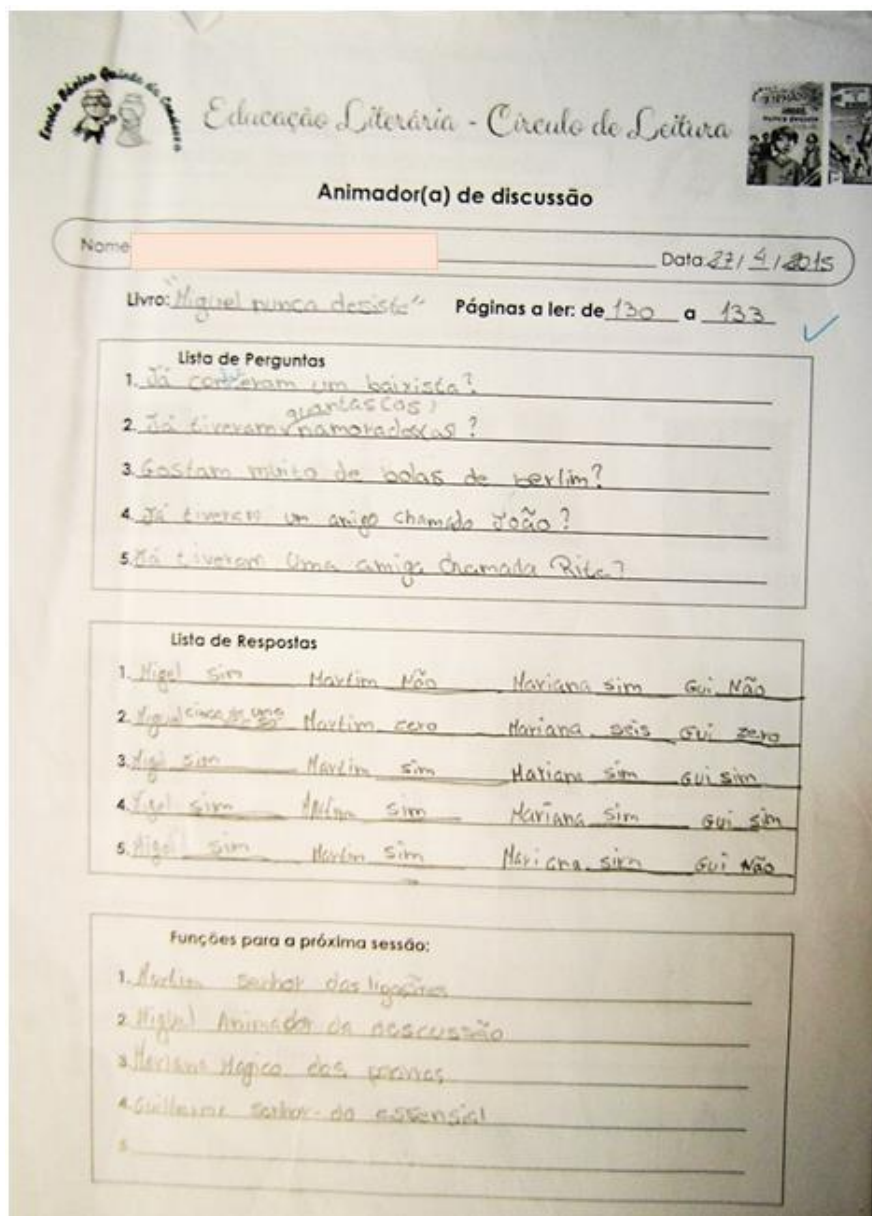 Escola Básica Quinta da Condessa
Educação Literária - Círculo de Leitura
Animador(a) de discussão
Nome
Data 27/4/2015
Livro: "Miguel nunca desiste" Páginas a ler: de 130 a 133
Lista de Perguntas
1. Já um baixista?
quantas(os)
2. Já tiveram namorados(as)?
3. Gostam muito de bolas de berlim?
4. Já tiveram um amigo chamado João?
5. Já tiveram uma amiga chamada Rita?
Lista de Respostas
1. Migel sim Martim Não Mariana sim Gui Não
2. Miguel Martim zero Mariana seis Gui zero
3. Migel sim Martim sim Mariana sim Gui sim
4. Migel sim Martim sim Mariana sim Gui sim
5. Migel sim Martim sim Mariana sim Gui Não
Funções para a próxima sessão:
1. Martim senhor das ligações
2. Miguel Animador da descussão
3. Mariana Magica das
4. Guilherme senhor do essensial
5.